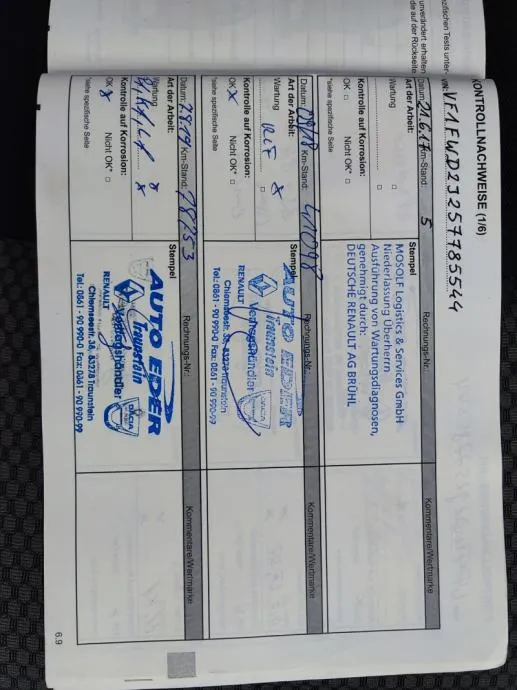 KONTROLLNACHWEISE (1/6)
VF1FWD2J257785544
Datum: 21.6.17 Km-Stand: 5 Rechnungs-Nr.: Kommentare/Wertmarke
Art der Arbeit:
Wartung
Kontrolle auf Korrosion:
OK Nicht OK*
*siehe spezifische Seite
Stempel
MOSOLF Logistics & Services GmbH
Niederlassung Überherrn
Ausführung von Wartungsdiagnosen,
genehmigt durch:
DEUTSCHE RENAULT AG BRÜHL
Datum: Km-Stand: Rechnungs-Nr.: Kommentare/Wertmarke
Art der Arbeit:
Wartung
Kontrolle auf Korrosion:
OK X Nicht OK*
*siehe spezifische Seite
Stempel
AUTO EDER
Traunstein
Vertragshändler
RENAULT
Chiemseestr. 38, 83278 Traunstein
Tel.: 0861 - 90 990-0 Fax: 0861 - 90 990-99
Datum: Km-Stand: 78253 Rechnungs-Nr.: Kommentare/Wertmarke
Art der Arbeit:
Wartung
Kontrolle auf Korrosion:
OK Nicht OK*
*siehe spezifische Seite
Stempel
AUTO EDER
Traunstein
Vertragshändler
RENAULT DACIA
Chiemseestr. 38, 83278 Traunstein
Tel.: 0861 - 90 990-0 Fax: 0861 - 90 990-99
6.9
zifischen Tests unter-
unverändert erhalten
die auf der Rückseite